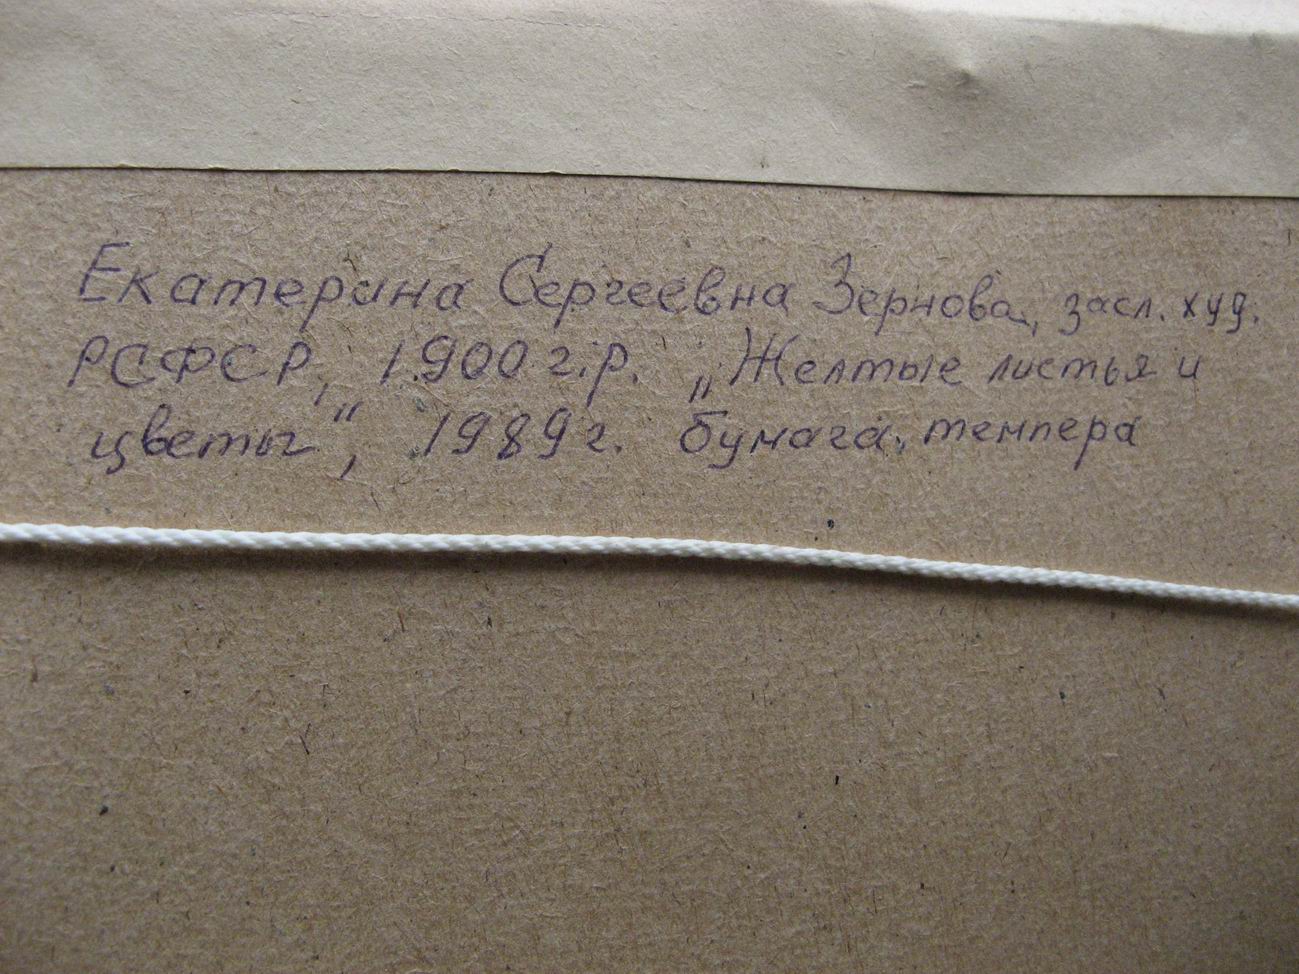 Екатерина Сергеевна Зернова, засл. худ.
РСФСР, 1900 г.р. „Желтые листья и
цветы“, 1989 г. бумага, темпера